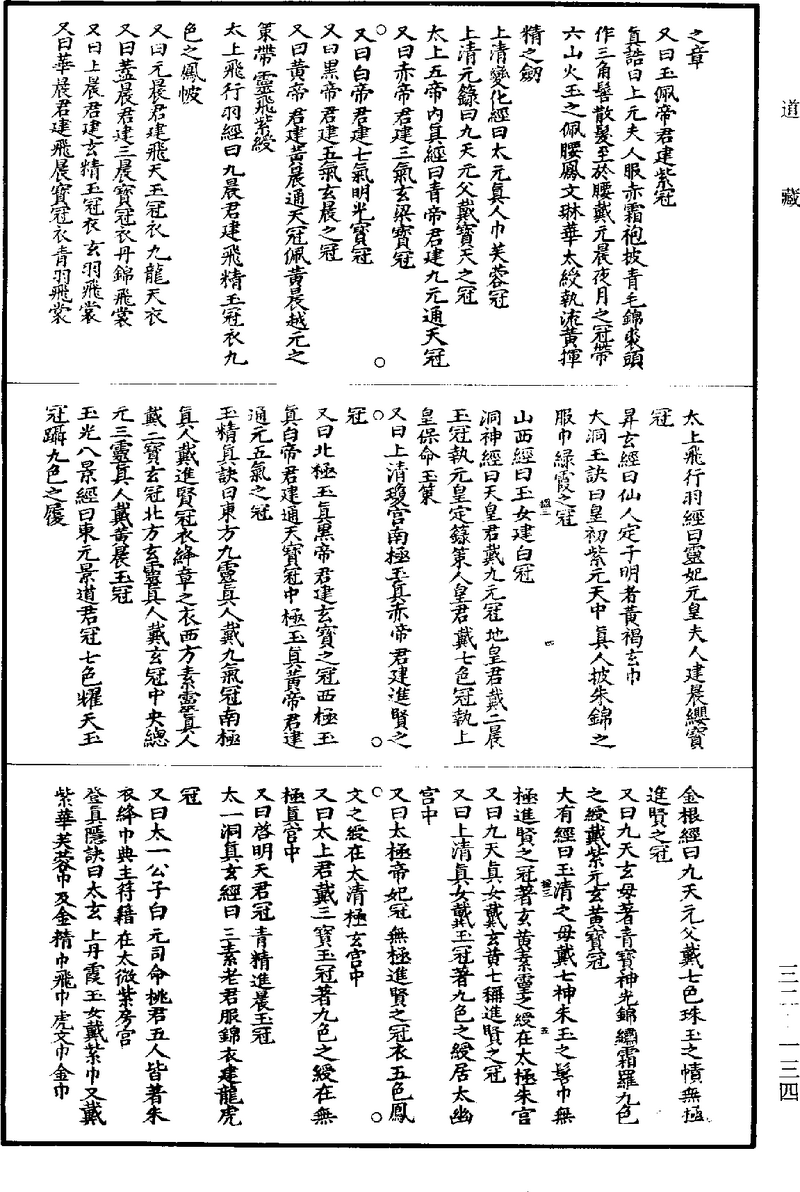 道藏
之章
又曰玉佩帝君建紫冠
真誥曰上元夫人服赤霜袍披青毛錦裘頭
作三角髻散髮至於腰戴元晨夜月之冠帶
六山火玉之佩腰鳳文琳華太綬執流黃揮
精之劒
上清變化經曰太元真人巾芙蓉冠
上清元籙曰九天元父戴寶天之冠
太上五帝內真經曰青帝君建九元通天冠
又曰赤帝君建三氣玄梁寶冠
又曰白帝君建七氣明光寶冠
又曰黑帝君建五氣玄晨之冠
又曰黃帝君建黃晨通天冠佩黃晨越元之
策帶靈飛紫綬
太上飛行羽經曰九晨君建飛精玉冠衣九
色之鳳帔
又曰元晨君建飛天玉冠衣九龍天衣
又曰蓋晨君建三晨寶冠衣丹錦飛裳
又曰上晨君建玄精玉冠衣玄羽飛裳
又曰華晨君建飛晨寶冠衣青羽飛裳
太上飛行羽經曰靈妃元皇夫人建晨纓寶
冠
昇玄經曰仙人定子明者黃褐玄巾
大洞玉訣曰皇初紫元天中真人披朱錦之
服巾綠霞之冠
山西經曰玉女建白冠
洞神經曰天皇君戴九元冠地皇君戴二晨
玉冠執元皇定籙策人皇君戴七色冠執上
皇保命玉策
又曰上清瓊宮南極玉真赤帝君建進賢之
冠
又曰北極玉真黑帝君建玄寶之冠西極玉
真白帝君建通天寶冠中極玉真黃帝君建
通元五氣之冠
玉精真訣曰東方九靈真人戴九氣冠南極
真人戴進賢冠衣絳章之衣西方素靈真人
戴二寶玄冠北方玄靈真人戴玄冠中央總
元三靈真人戴黃晨玉冠
玉光八景經曰東元景道君冠七色耀天玉
冠躡九色之履
金根經曰九天元父戴七色珠玉之幘無極
進賢之冠
又曰九天玄母著青寶神光錦繡霜羅九色
之綬戴紫元玄黃寶冠
大有經曰玉清之母戴七神朱玉之髻巾無
極進賢之冠著玄黃素靈之綬在太極朱宮
又曰九天真女戴玄黃七稱進賢之冠
又曰上清真女戴玉冠著九色之綬居太幽
宮中
又曰太極帝妃冠無極進賢之冠衣五色鳳
文之綬在太清極玄宮中
又曰太上君戴三寶玉冠著九色之綬在無
極真宮中
又曰啓明天君冠青精進晨玉冠
太一洞真玄經曰三素老君服錦衣建龍虎
冠
又曰太一公子白元司命桃君五人皆著朱
衣絳巾典主符籍在太微紫房宮
登真隱訣曰太玄上丹霞玉女戴紫巾又戴
紫華芙蓉巾及金精巾飛巾虎文巾金巾
三二·一三四